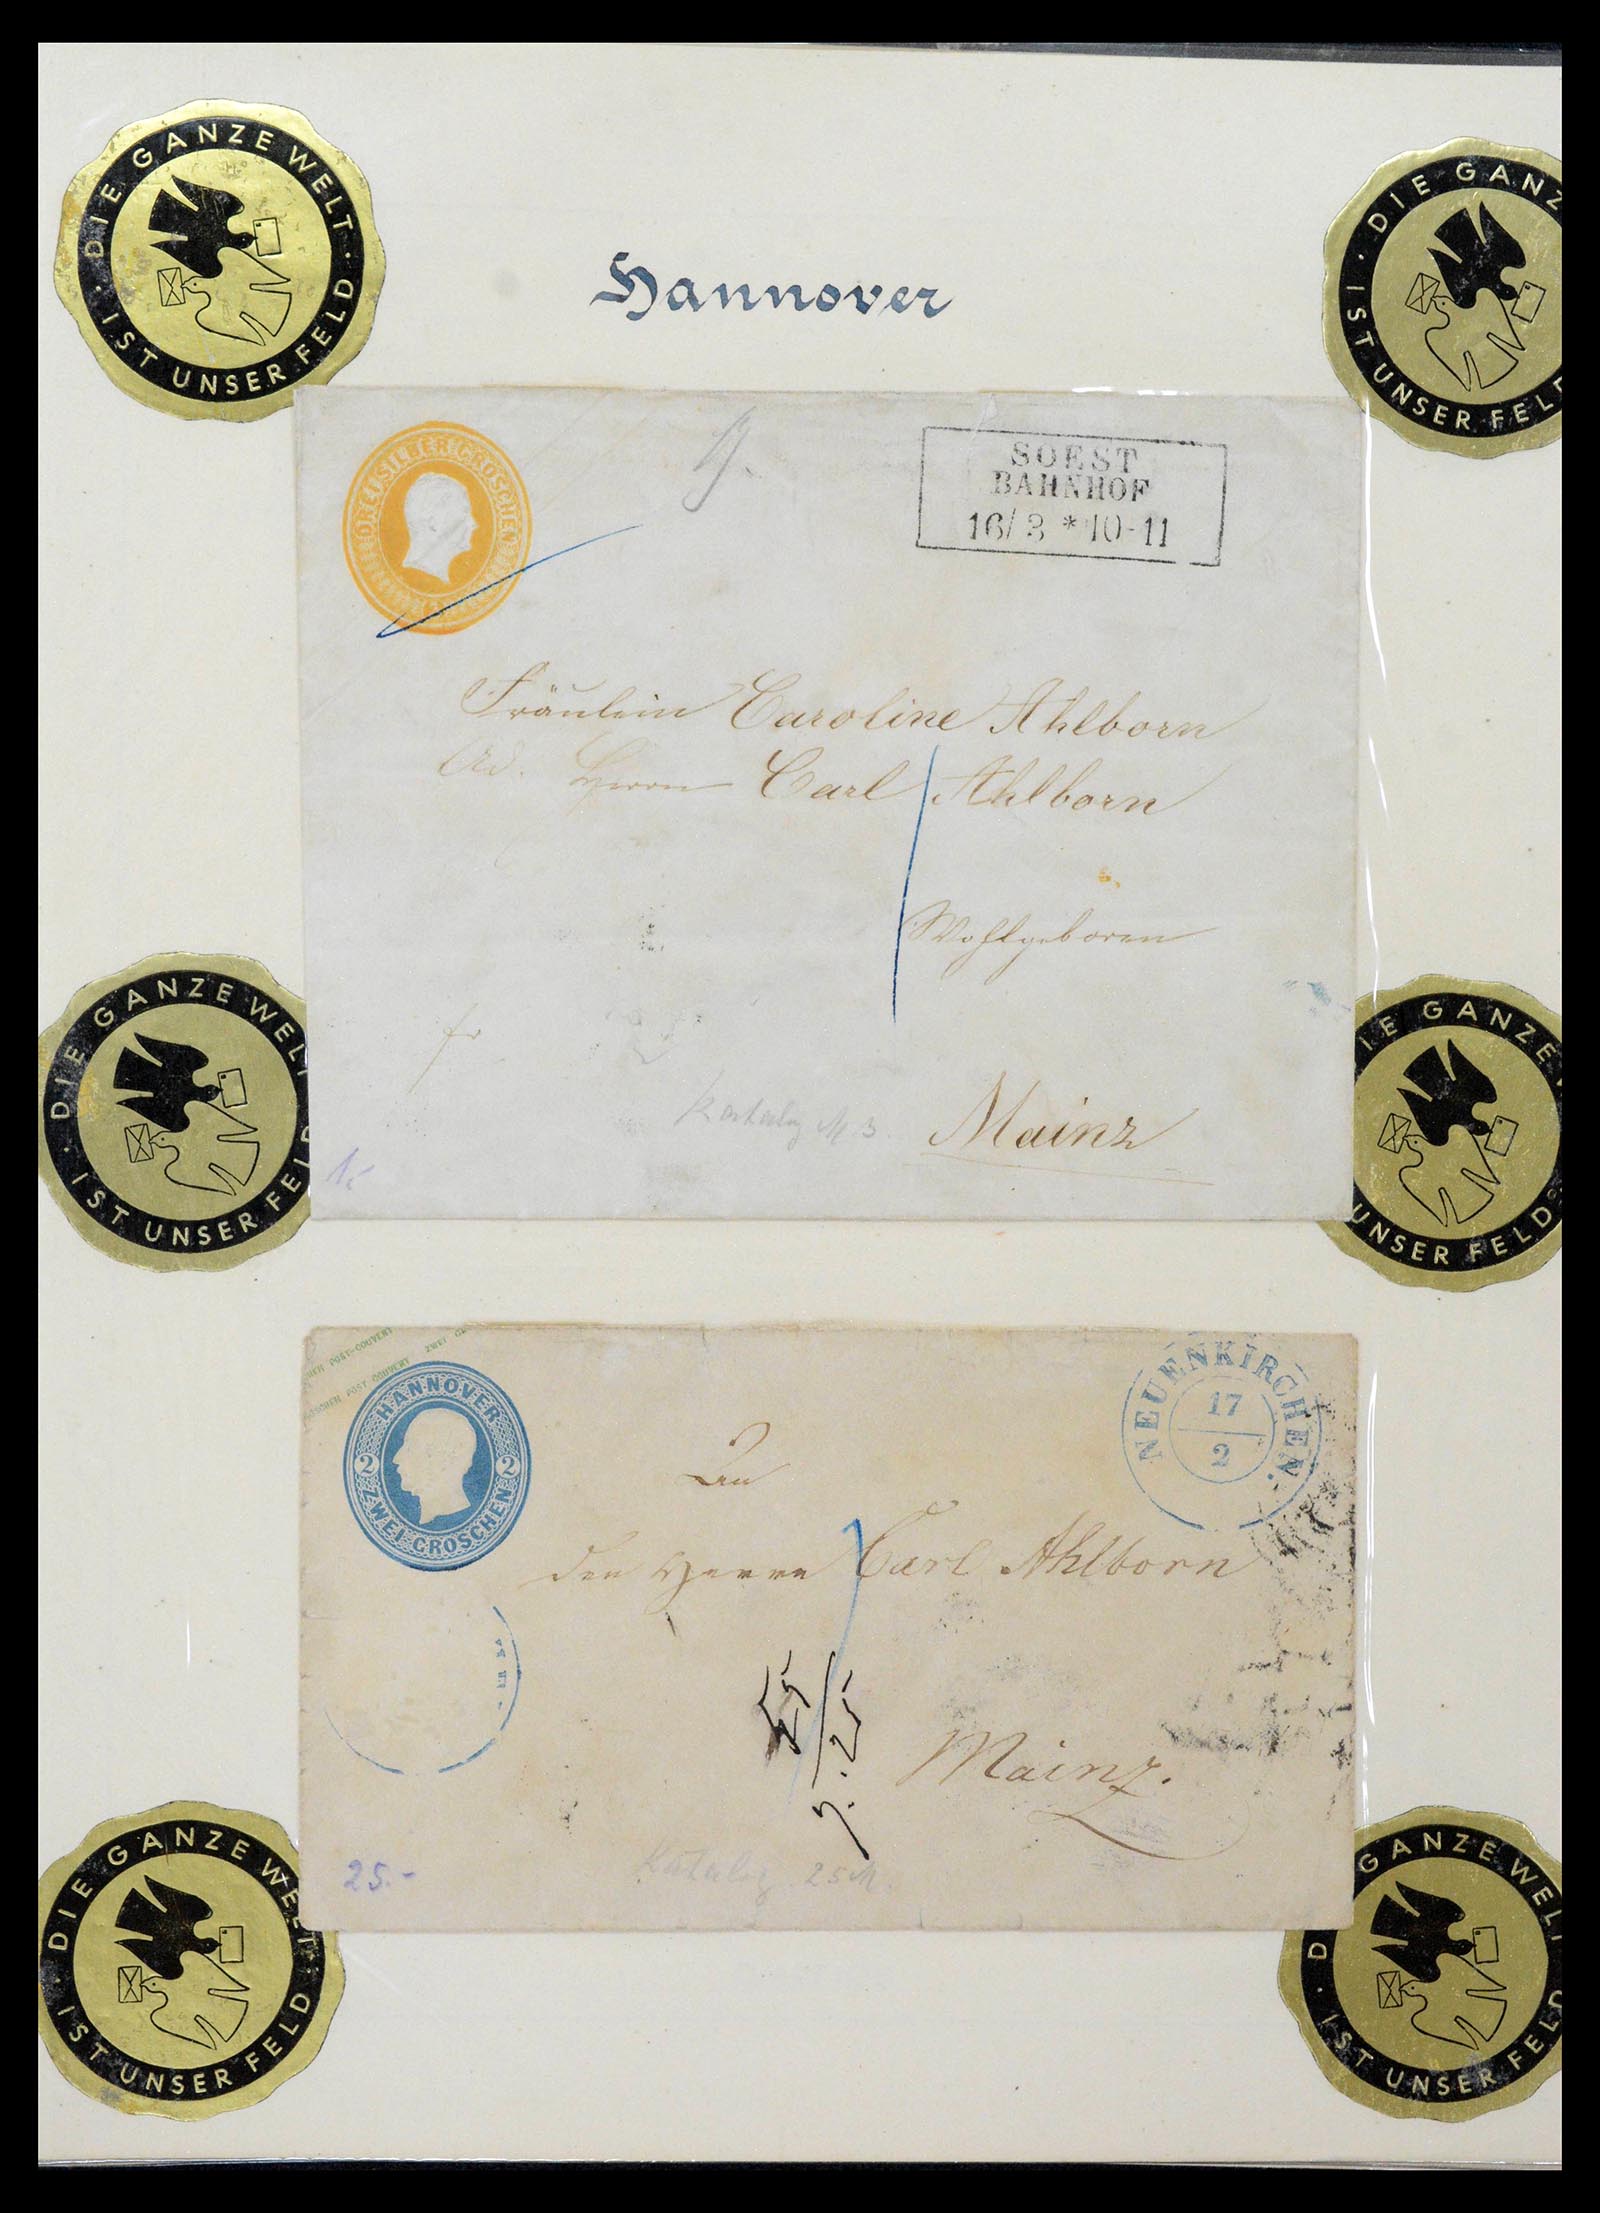 DIE GANZE WELT · IST UNSER FELD ·
DIE GANZ
· IST UNSER FEL
Hannover
DREI SILBERGROSCHEN
SOEST
BAHNHOF
16/3 * 10-11
Fräulein Caroline Ahlborn
Ad. Herrn Carl Ahlborn
Wohlgeboren
fr
Katalog M 3.
Mainz
DIE GANZE WEL
· IST UNSER FEL
IE GANZE
UNSER FELD
POST-COUVERT
POST COUVERT ZWEI
GROSCHEN POST
HANNOVER
2 2
ZWEI GROSCHEN
NEUENKIRCHEN.
17
2
An
den Herrn Carl Ahlborn
Mainz.
25.-
Katalog 25 M.
DIE GANZE WELT
· IST UNSER FELD
D GANZE WEL
· IST UNSER FELD